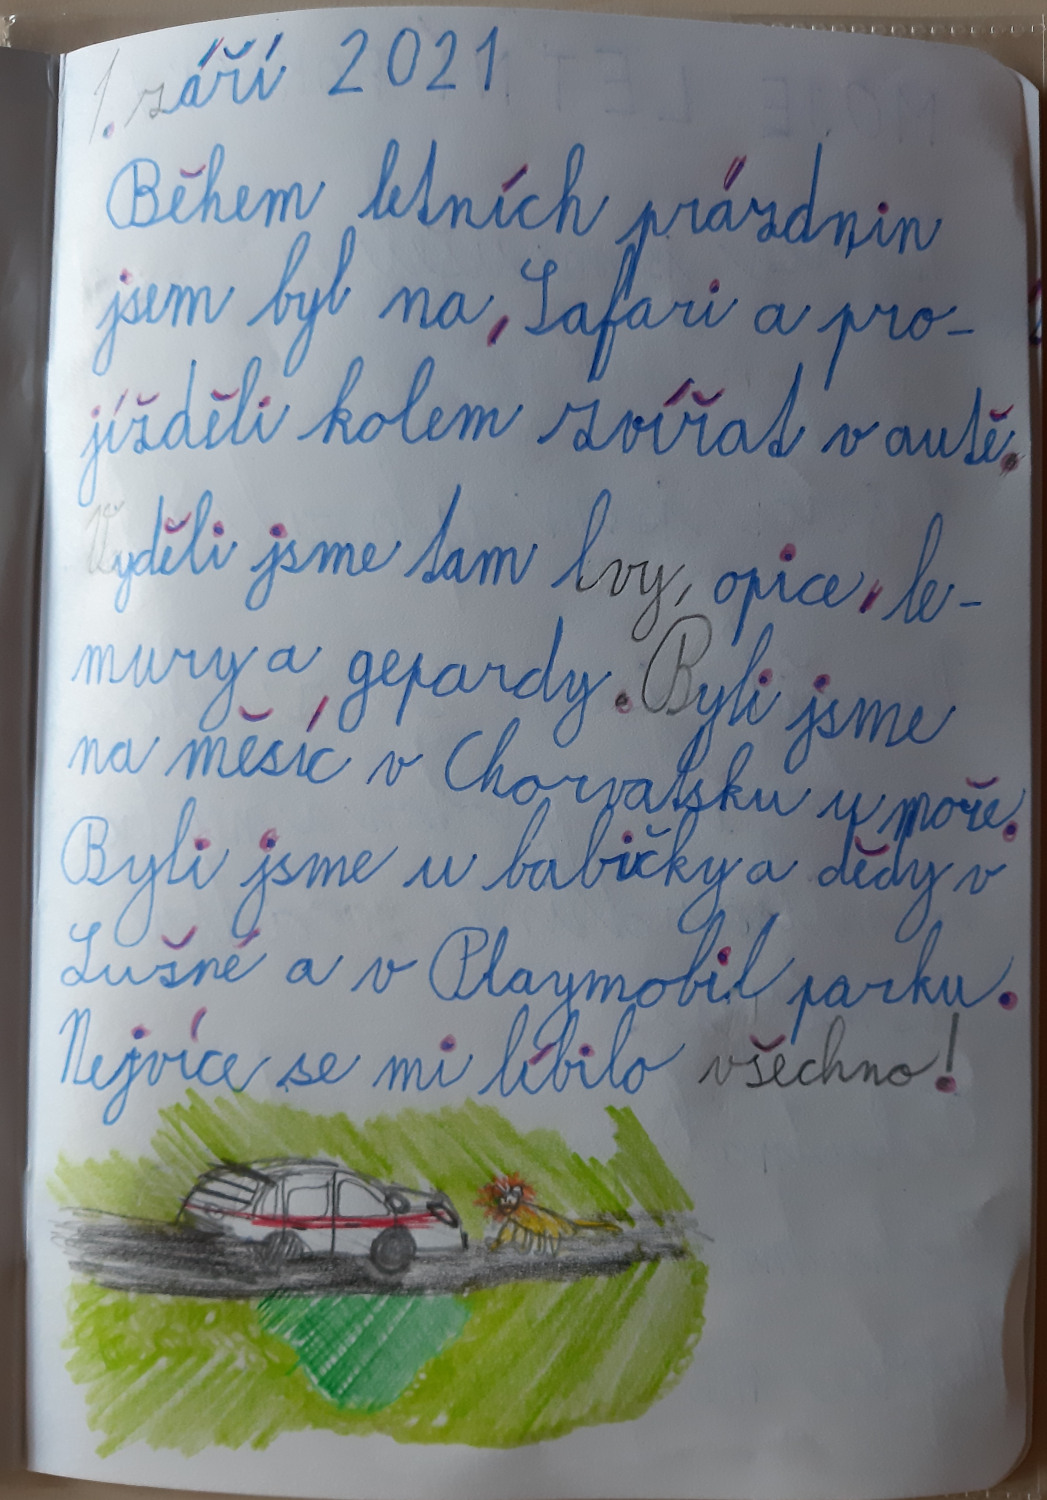 1. září 2021
Během letních prázdnin
jsem byl na, Safari a pro-
jížděli kolem zvířat v autě.
Vyděli jsme tam lvy, opice, le-
mury a gepardy. Byli jsme
na měsíc v Chorvatsku u moře.
Byli jsme u babičky a dědy v
Lušné a v Playmobil parku.
Nejvíce se mi líbilo všechno!